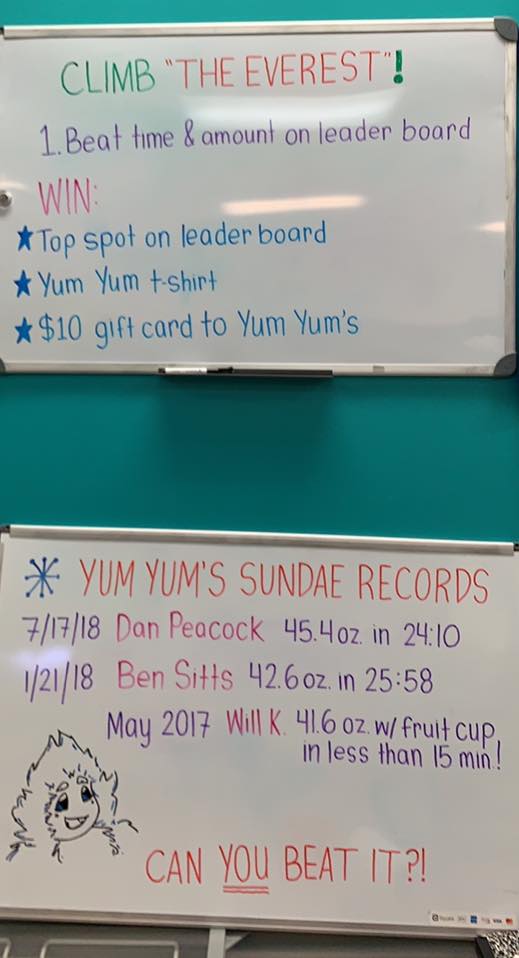 CLIMB "THE EVEREST"!
1. Beat time & amount on leader board
WIN:
★ Top spot on leader board
★ Yum Yum t-shirt
★ $10 gift card to Yum Yum's
* YUM YUM'S SUNDAE RECORDS
7/17/18 Dan Peacock 45.4 oz. in 24:10
1/21/18 Ben Sitts 42.6 oz. in 25:58
May 2017 Will K. 41.6 oz. w/ fruit cup
in less than 15 min!
CAN YOU BEAT IT?!